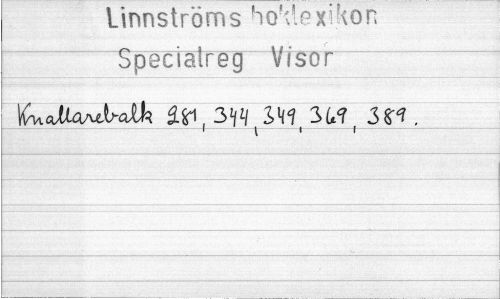 Linnströms boklexikon
Specialreg Visor
Knallarebalk 281, 344, 349, 369, 389.